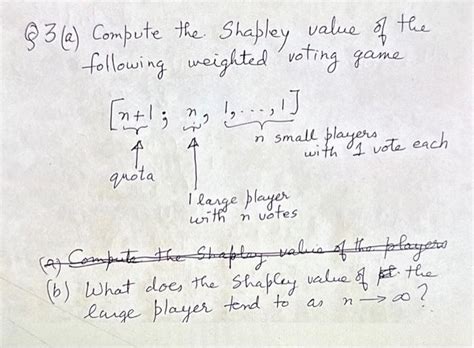 Q3(a) Compute the Shapley value of the
following weighted voting game
[n+1; n, 1, ..., 1]
n small players
with 1 vote each
quota
1 large player
with n votes
(a) Compute the Shapley value of the players
(b) What does the Shapley value of the
large player tend to as n → ∞?